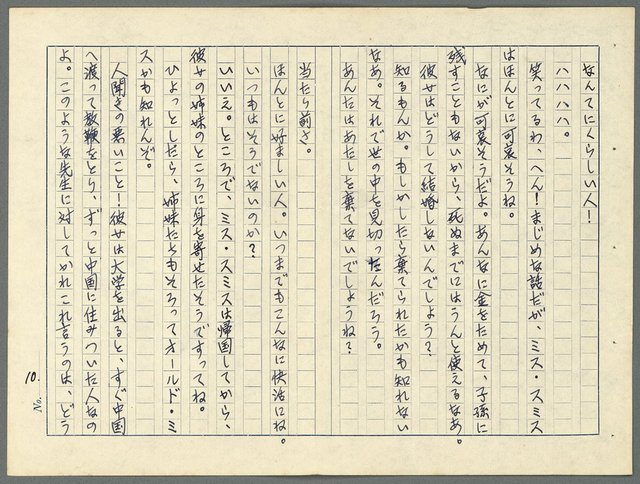 なんてにくらしい人！
ハハハハ。
笑ってるわ、へん！まじめな話だが、ミス・スミス
はほんとに可哀そうね。
なにが可哀そうだよ。あんなに金をためて、子孫に
残すこともないから、死ぬまでにはうんと使えるなあ。
彼女はどうして結婚しないんでしょう？
知るもんか。もしかしたら棄てられたかも知れない
なあ。それで世の中を見切ったんだろう。
あんたはあたしを棄てないでしょうね？
当たら前さ。
ほんとに好ましい人。いつまでもこんなに快活にね。
いつもはそうでないのか？
いいえ。ところで、ミス・スミスは帰国してから、
彼女の姉妹のところに身を寄せたそうですってね。
ひょっとしだら、姉妹たちもそろってオールド・ミ
スかも知れんぞ。
人聞きの悪いこと！彼女は大学を出ると、すぐ中国
へ渡って教鞭をとり、ずっと中国に住みついた人なの
よ。このような先生に対してかれこれ言うのは、どう
No. 10.